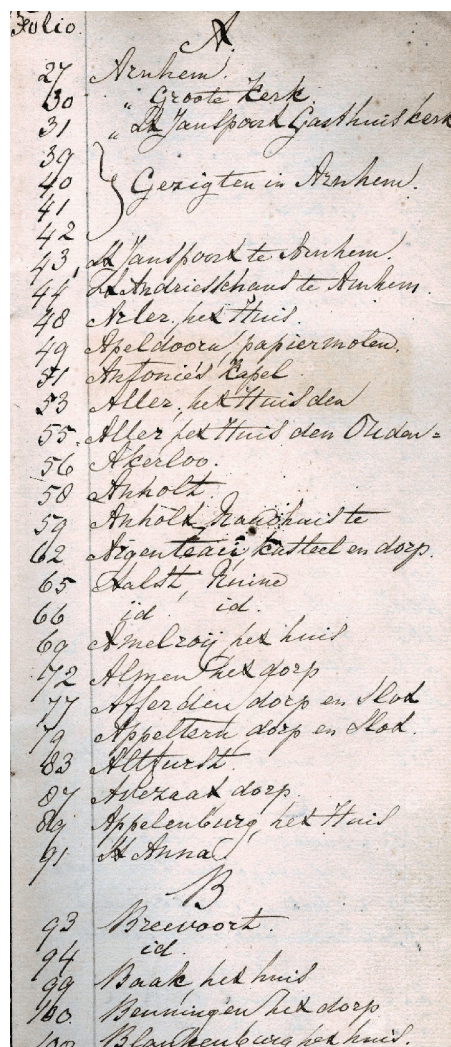 Folio.
A.
27 Arnhem.
30 " Groote Kerk.
31 " St Janspoort Gasthuis kerk
39
40 Gezigten in Arnhem.
41
42
43 St Janspoort te Arnhem.
44 St Andriesschans te Arnhem.
48 Arler, het Huis.
49 Apeldoorn, papiermolen.
51 Antonie's Kapel.
53 Aller, het Huis den
55. Aller, het Huis den Ouden=
56 Akerloo.
58 Anholt.
59 Anholt, Raadhuis te
62 Argenteau, kasteel en dorp.
65 Aalst, Ruine
66 id. id.
69 Amelroij het huis
72 Almen het dorp
77 Afferden, dorp en Slot
79 Appeltern, dorp en Slot.
83 Altforst.
87 Avezaat dorp.
89 Appelenburg, het Huis
91 St Anna
B
93 Breevoort.
94 id.
99 Baak, het huis
100 Benningen het dorp
Blankenburg het huis.